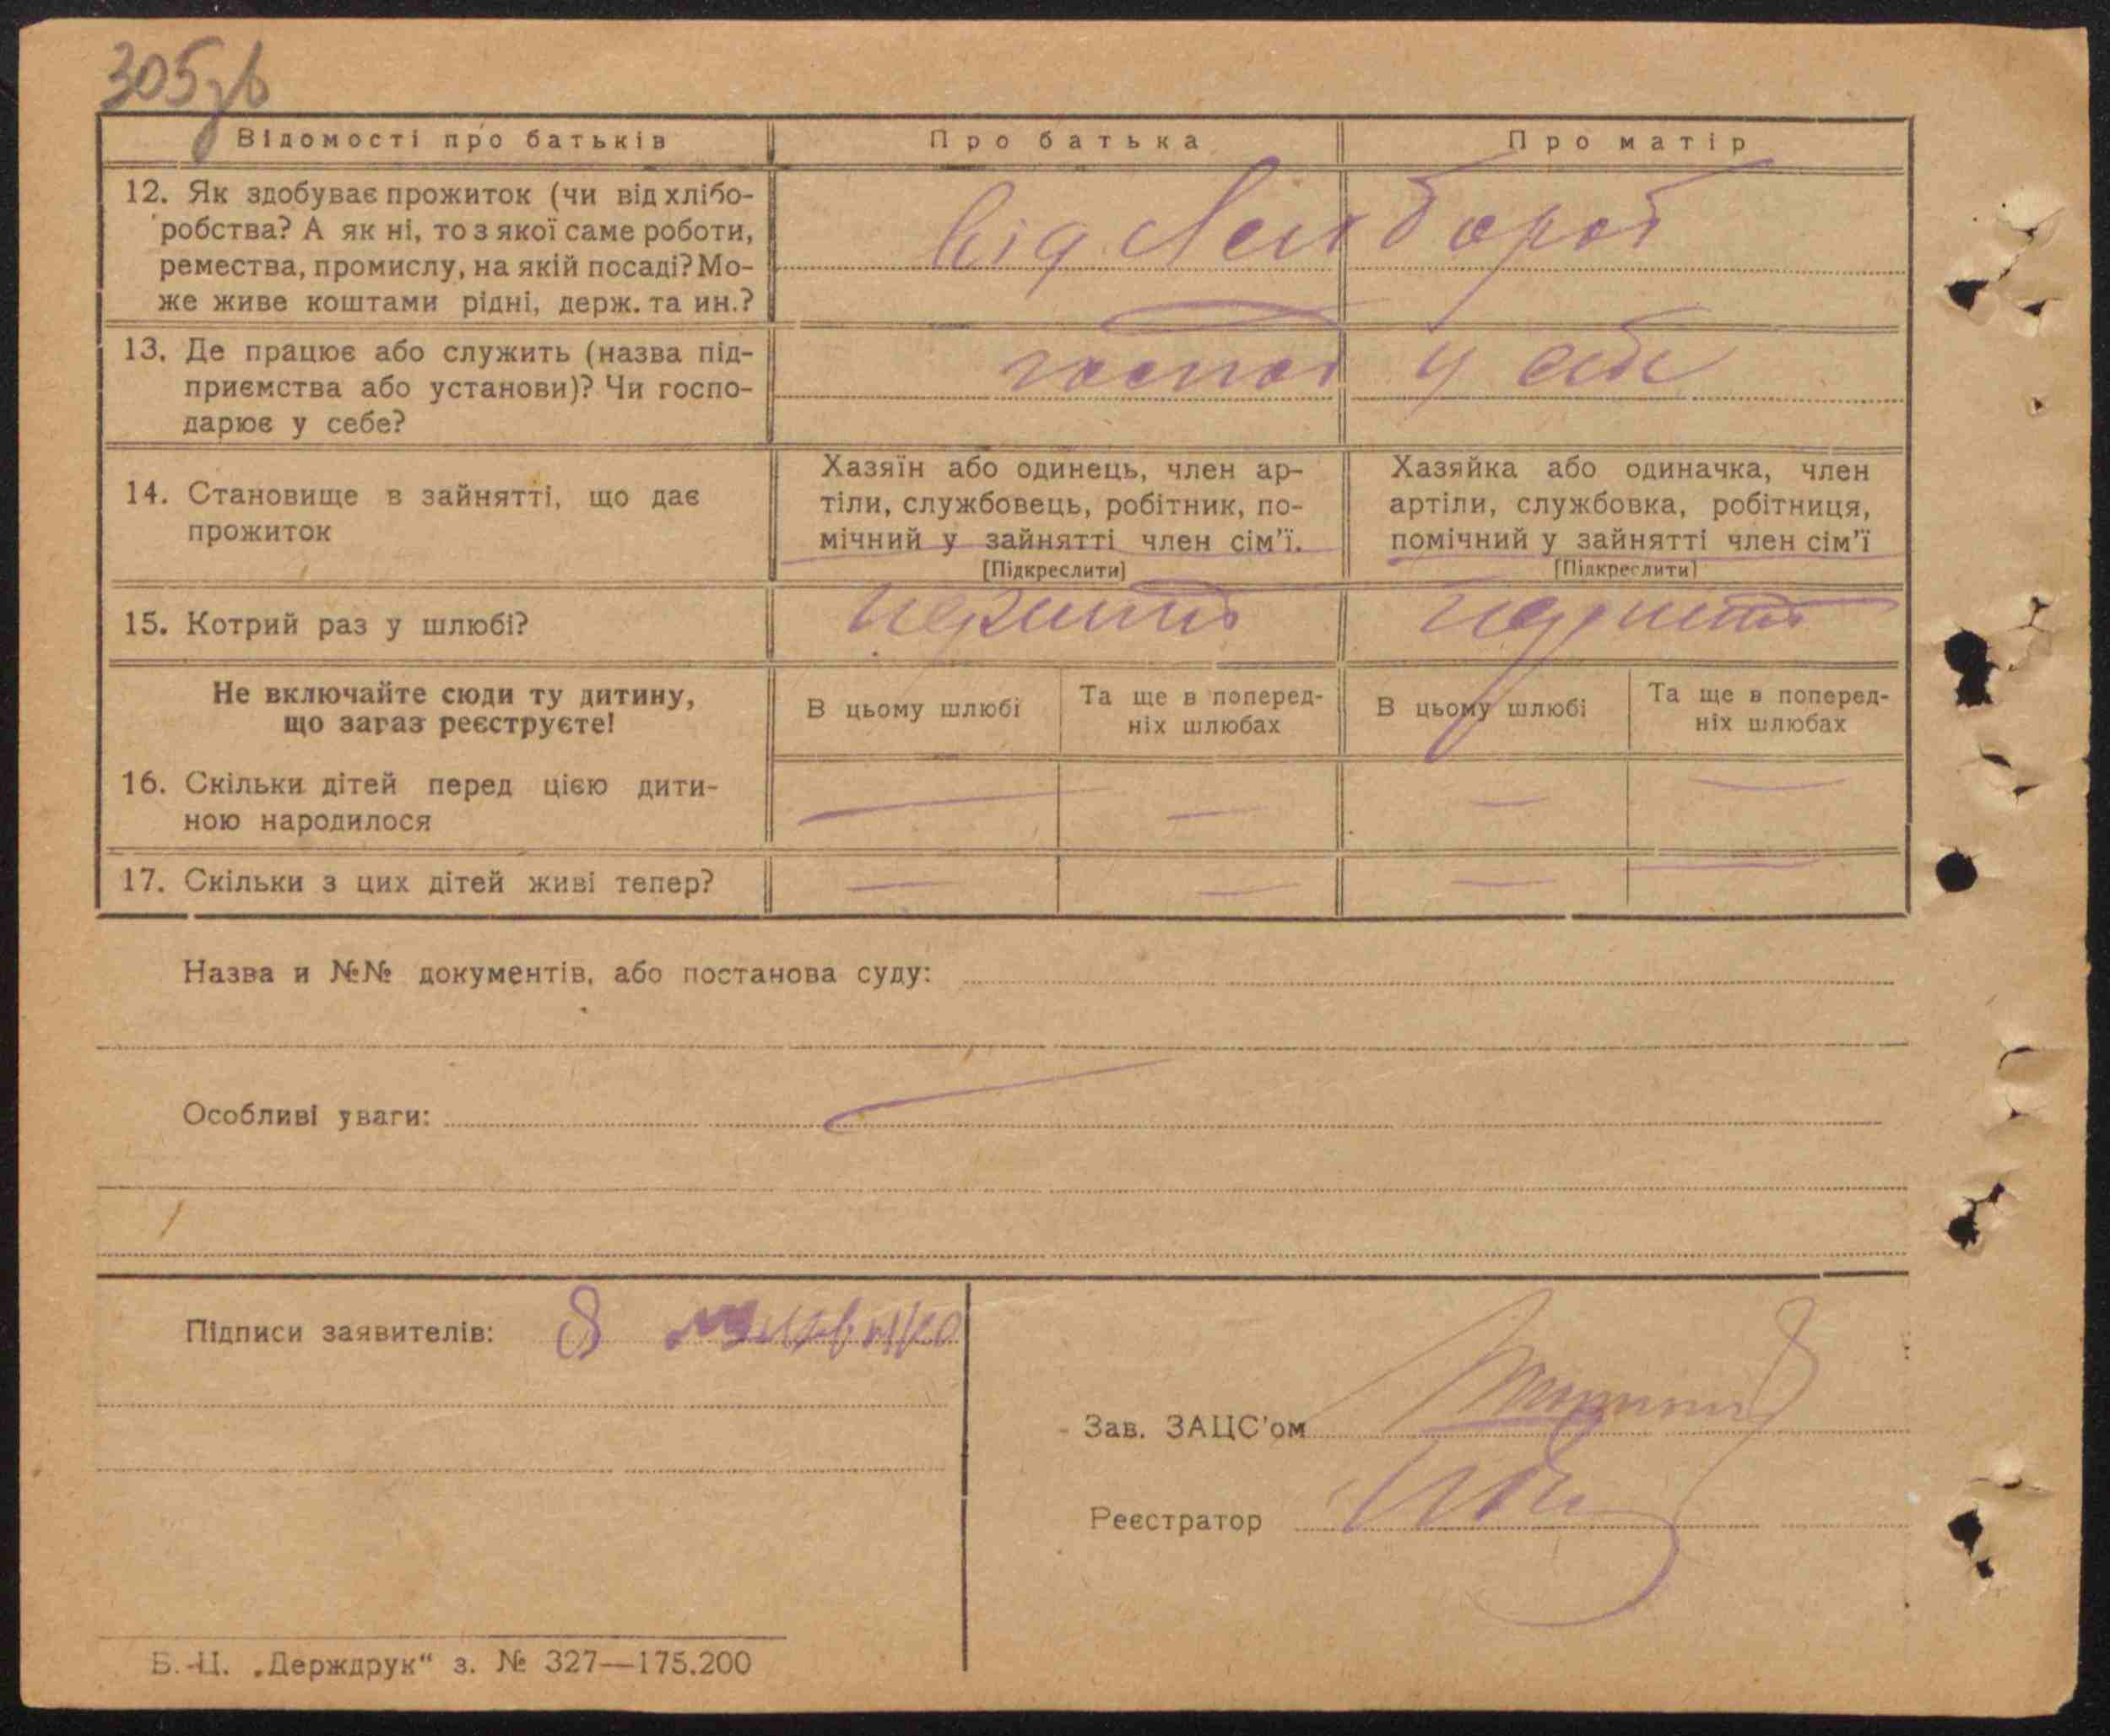 305зв
Відомості про батьків
Про батька
Про матір
12. Як здобуває прожиток (чи від хлібо-
робства? А як ні, то з якої саме роботи,
ремества, промислу, на якій посаді? Мо-
же живе коштами рідні, держ. та ин.?
від
13. Де працює або служить (назва під-
приємства або установи)? Чи госпо-
дарює у себе?
у себе
14. Становище в зайнятті, що дає
прожиток
Хазяїн або одинець, член ар-
тіли, службовець, робітник, по-
мічний у зайнятті член сім'ї.
[Підкреслити]
Хазяйка або одиначка, член
артіли, службовка, робітниця,
помічний у зайнятті член сім'ї
[Підкреслити]
15. Котрий раз у шлюбі?
Не включайте сюди ту дитину,
що зараз реєструєте!
В цьому шлюбі
Та ще в поперед-
ніх шлюбах
В цьому шлюбі
Та ще в поперед-
ніх шлюбах
16. Скільки дітей перед цією дити-
ною народилося
— — — —
17. Скільки з цих дітей живі тепер?
— — — —
Назва и №№ документів, або постанова суду:
Особливі уваги:
Підписи заявителів:
Зав. ЗАЦС'ом
Реєстратор
Б.-Ц. „Держдрук“ з. № 327—175.200